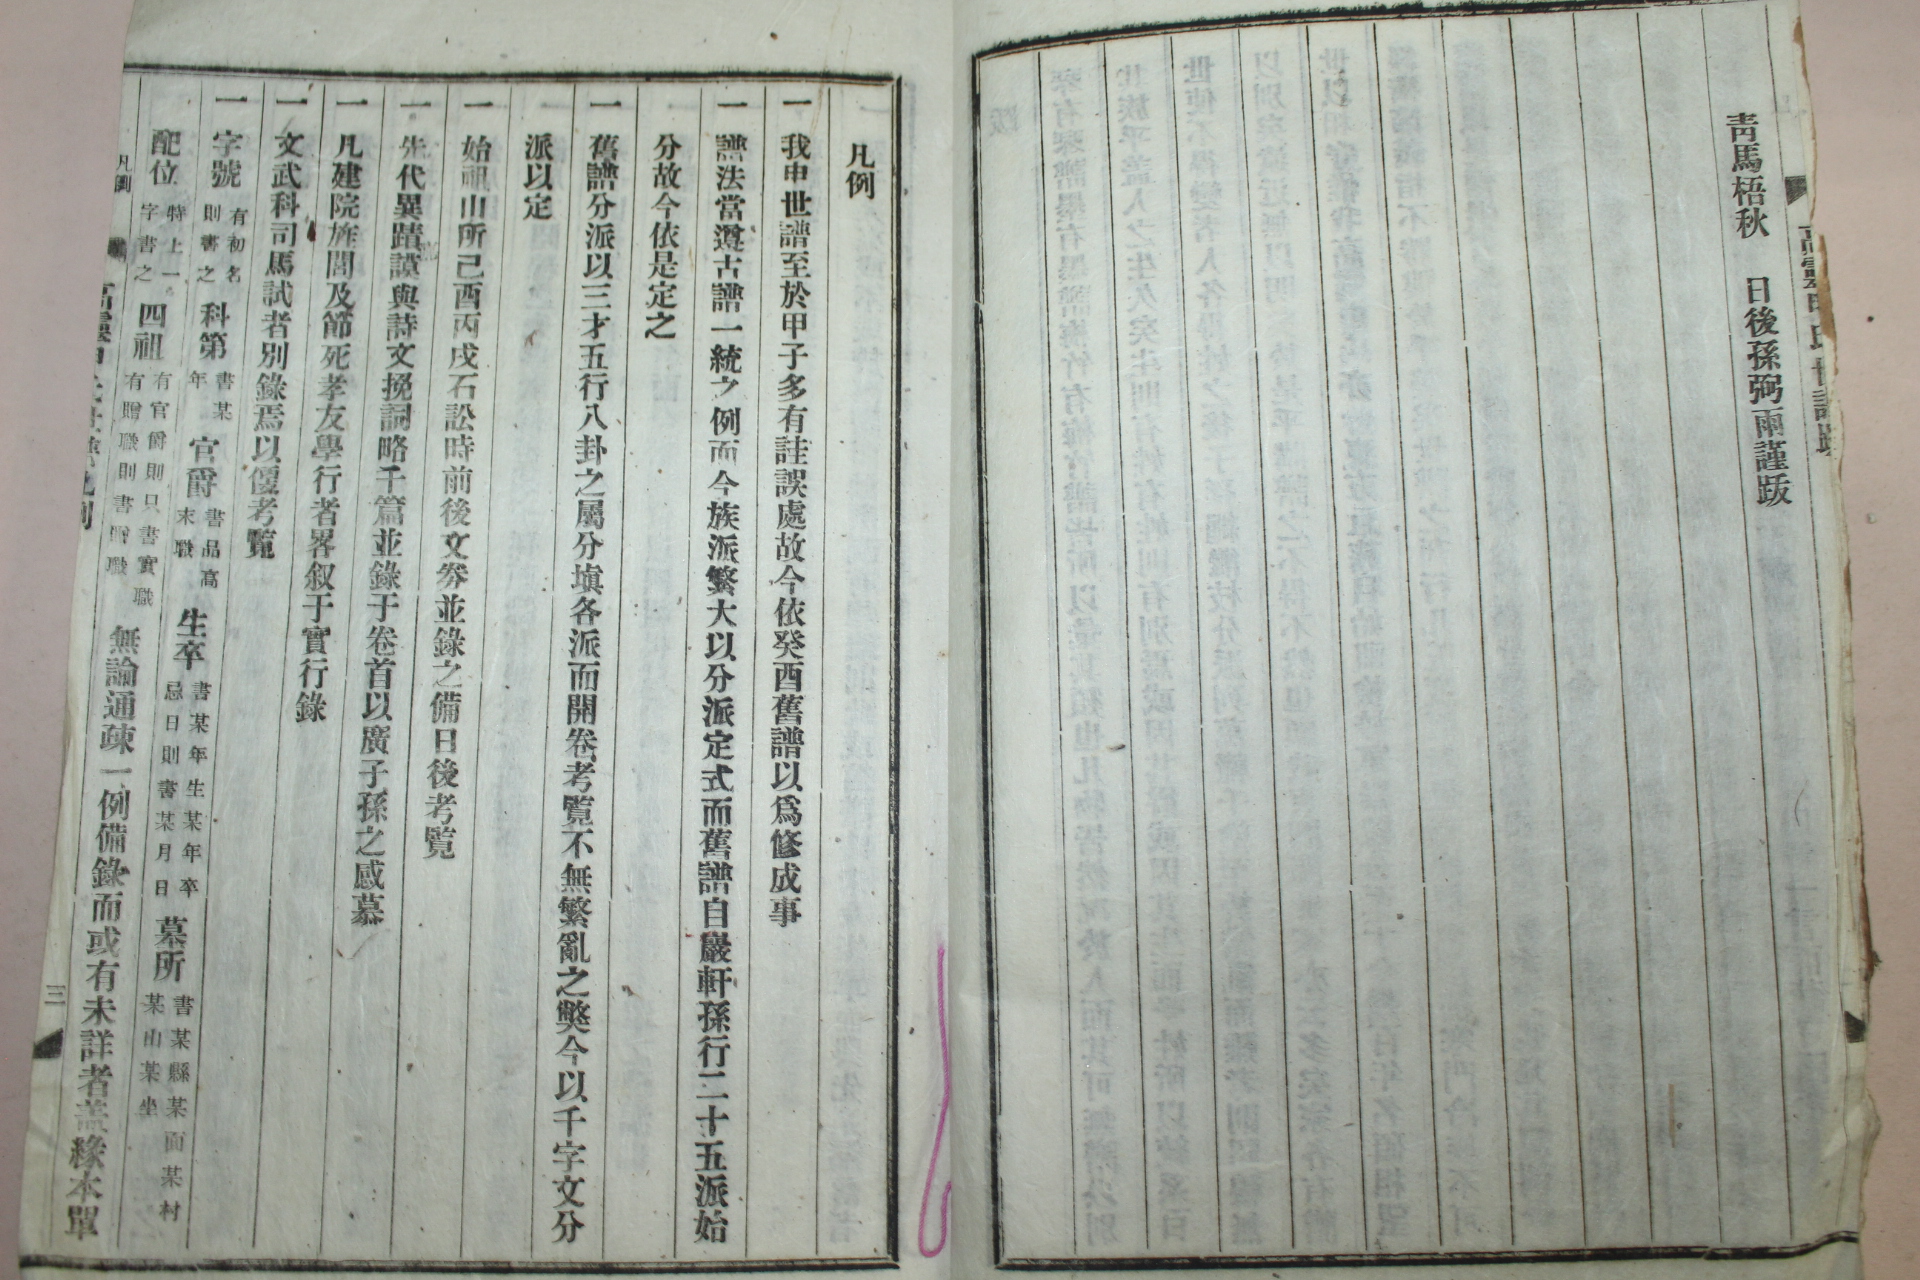 靑馬梧秋 日後孫弼雨謹跋
凡例
一 我申世譜至於甲子多有註誤處故今依癸酉舊譜以爲修成事
一 譜法當遵古譜一統之例而今族派繁大以分派定式而舊譜自巖軒孫行二十五派始
分故今依是定之
一 舊譜分派以三才五行八卦之屬分塡各派而開卷考覽不無繁亂之獘今以千字文分
派以定
一 始祖山所己酉丙戌石訟時前後文劵並錄之備日後考覽
一 先代異蹟讜與詩文挽詞略千篇並錄于卷首以廣子孫之感慕
一 凡建院旌閭及節死孝友學行者畧叙于實行錄
一 文武科司馬試者別錄焉以便考覽
一 字號 有初名則書之 科第 書某年 官爵 書品高末職 生卒 書某年生某年卒忌日則書某月日 墓所 書某縣某面某村某山某坐
配位 特上一字書之 四祖 有官爵則只書實職有贈職則書贈職 無論通疎一例備錄而或有未詳者盖緣本單
凡例
三